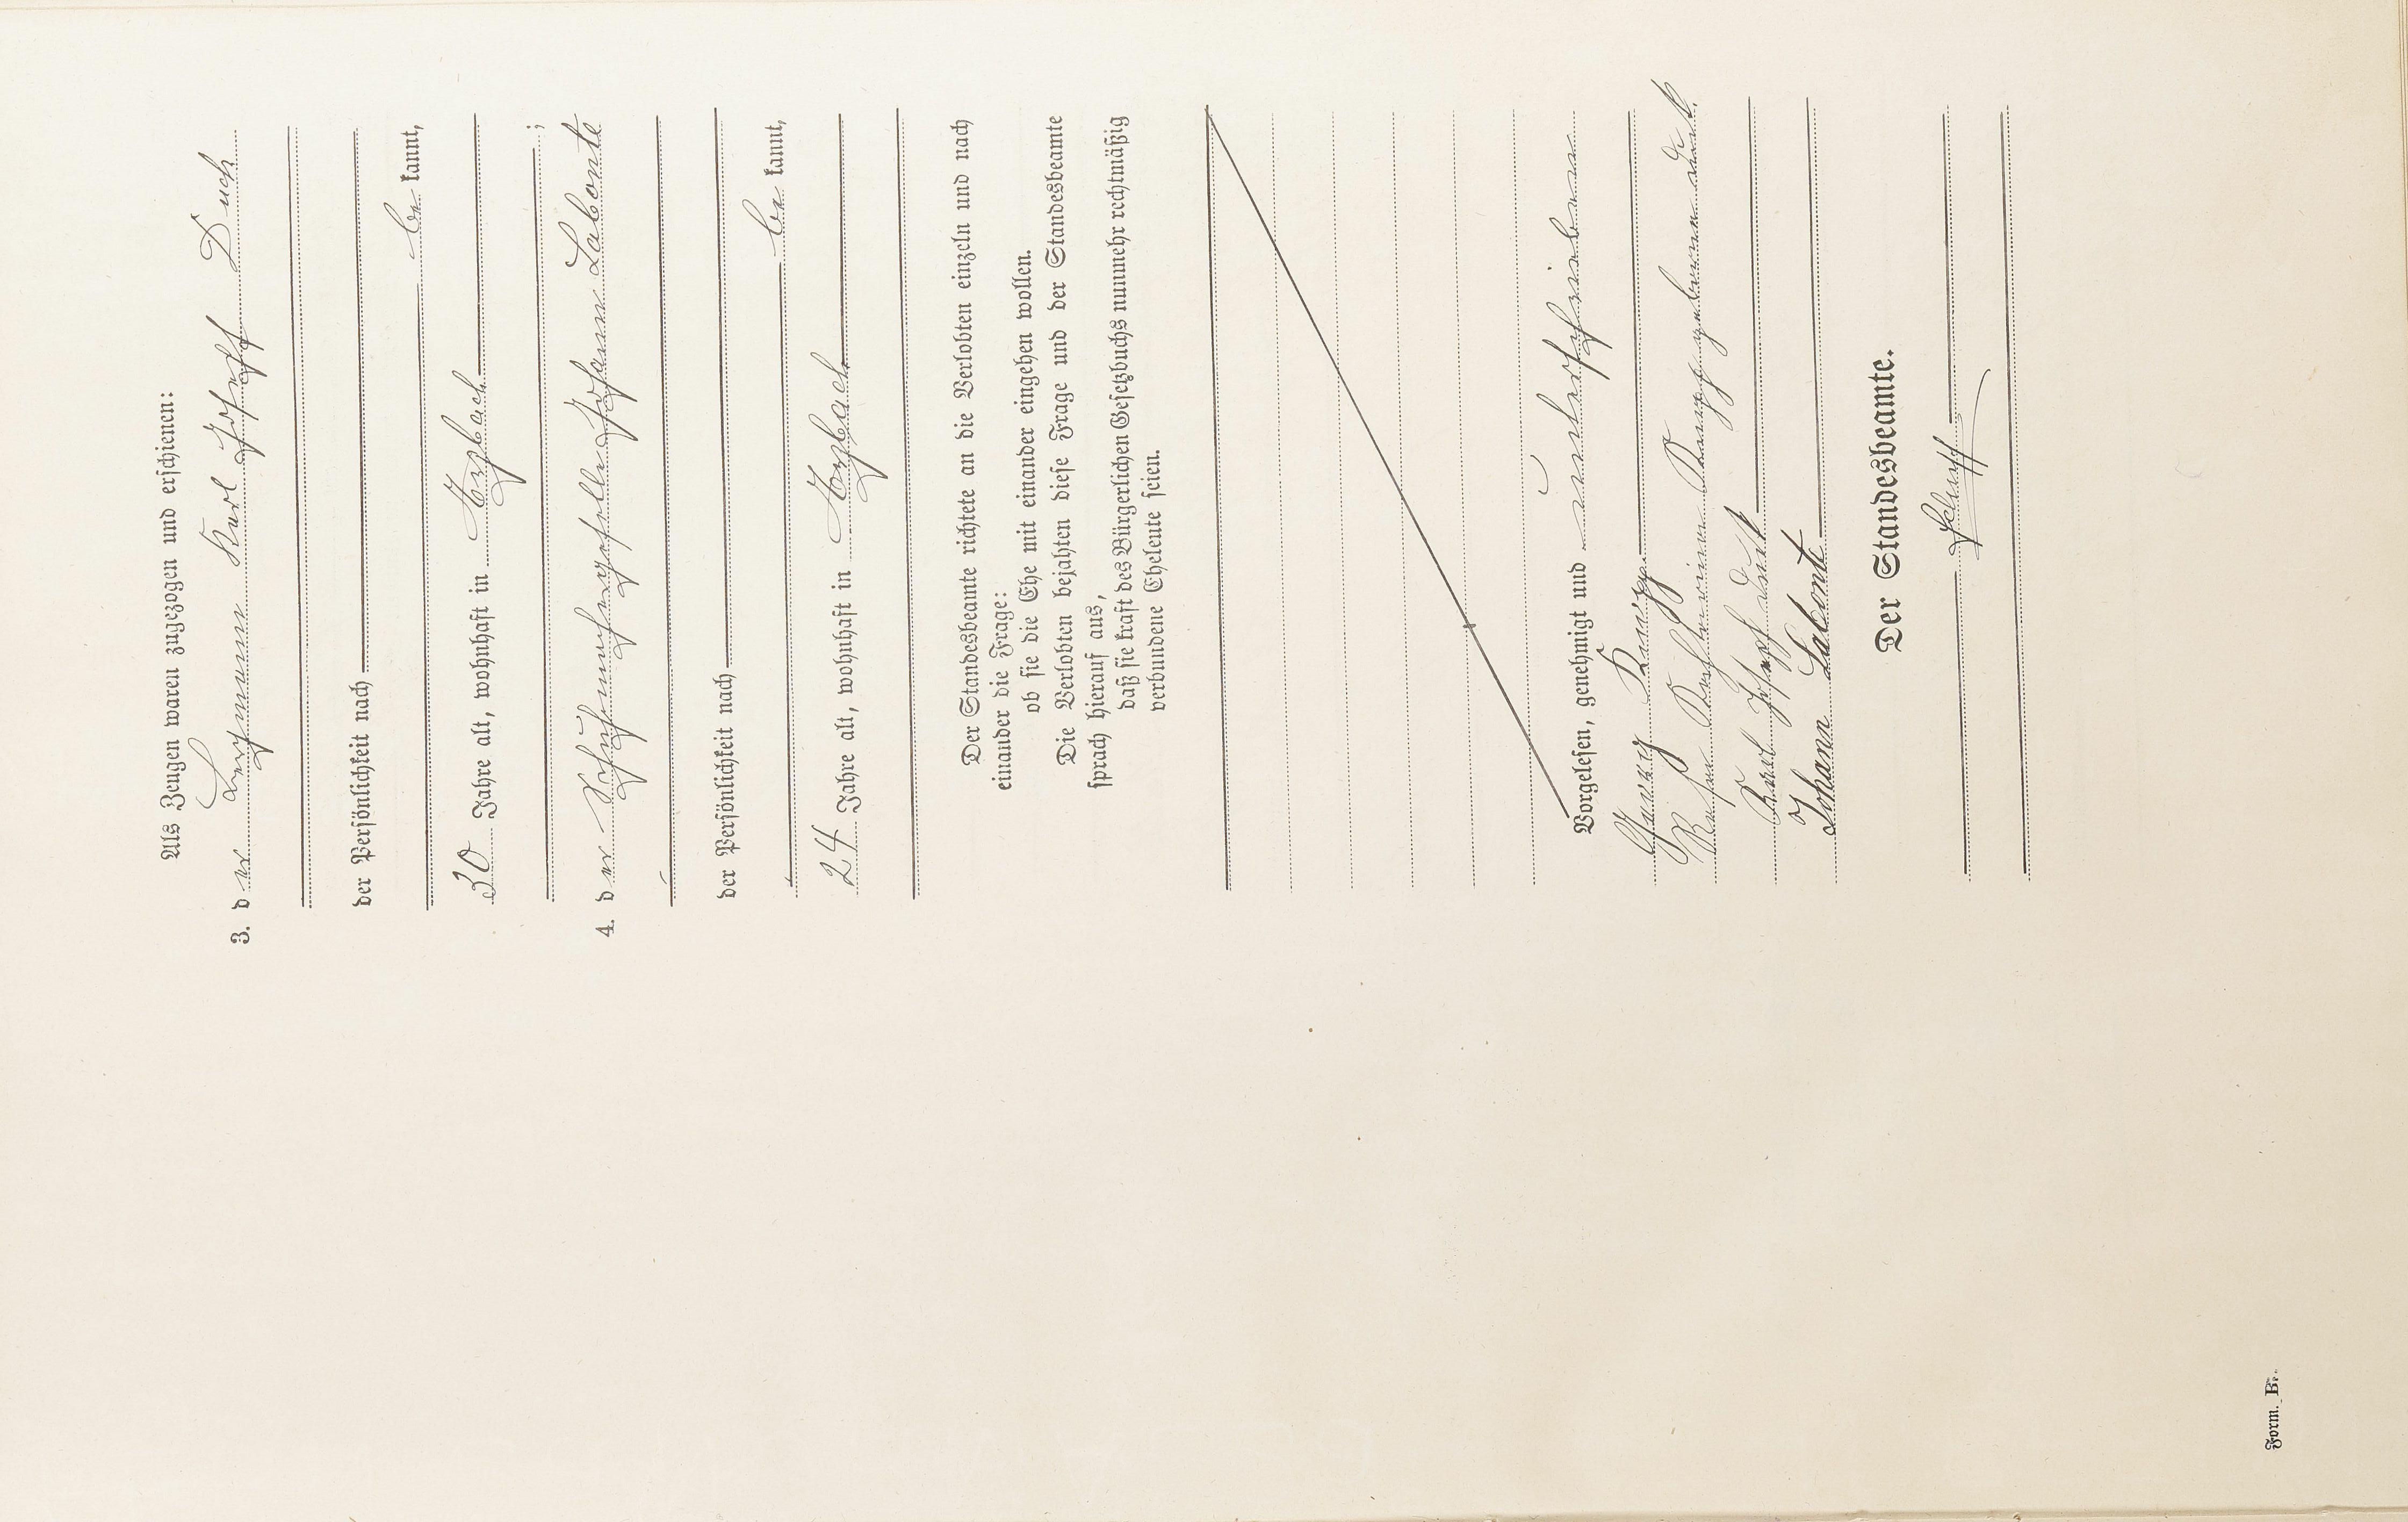 Als Zeugen waren zugezogen und erschienen:
3. der Bergmann Karl Joseph Duch
der Persönlichkeit nach
be kannt,
30 Jahre alt, wohnhaft in Asbach
;
4. der Schuhmachergeselle Johann Labonte
der Persönlichkeit nach
be kannt,
24 Jahre alt, wohnhaft in Asbach
Der Standesbeamte richtete an die Verlobten einzeln und nach
einander die Frage:
ob sie die Ehe mit einander eingehen wollen.
Die Verlobten bejahten diese Frage und der Standesbeamte
sprach hierauf aus,
daß sie kraft des Bürgerlichen Gesetzbuchs nunmehr rechtmäßig
verbundene Eheleute seien.
Vorgelesen, genehmigt und unterschrieben
Georg
geborene
Karl Joseph Duch
Johann Labonte
Der Standesbeamte.
Form. B